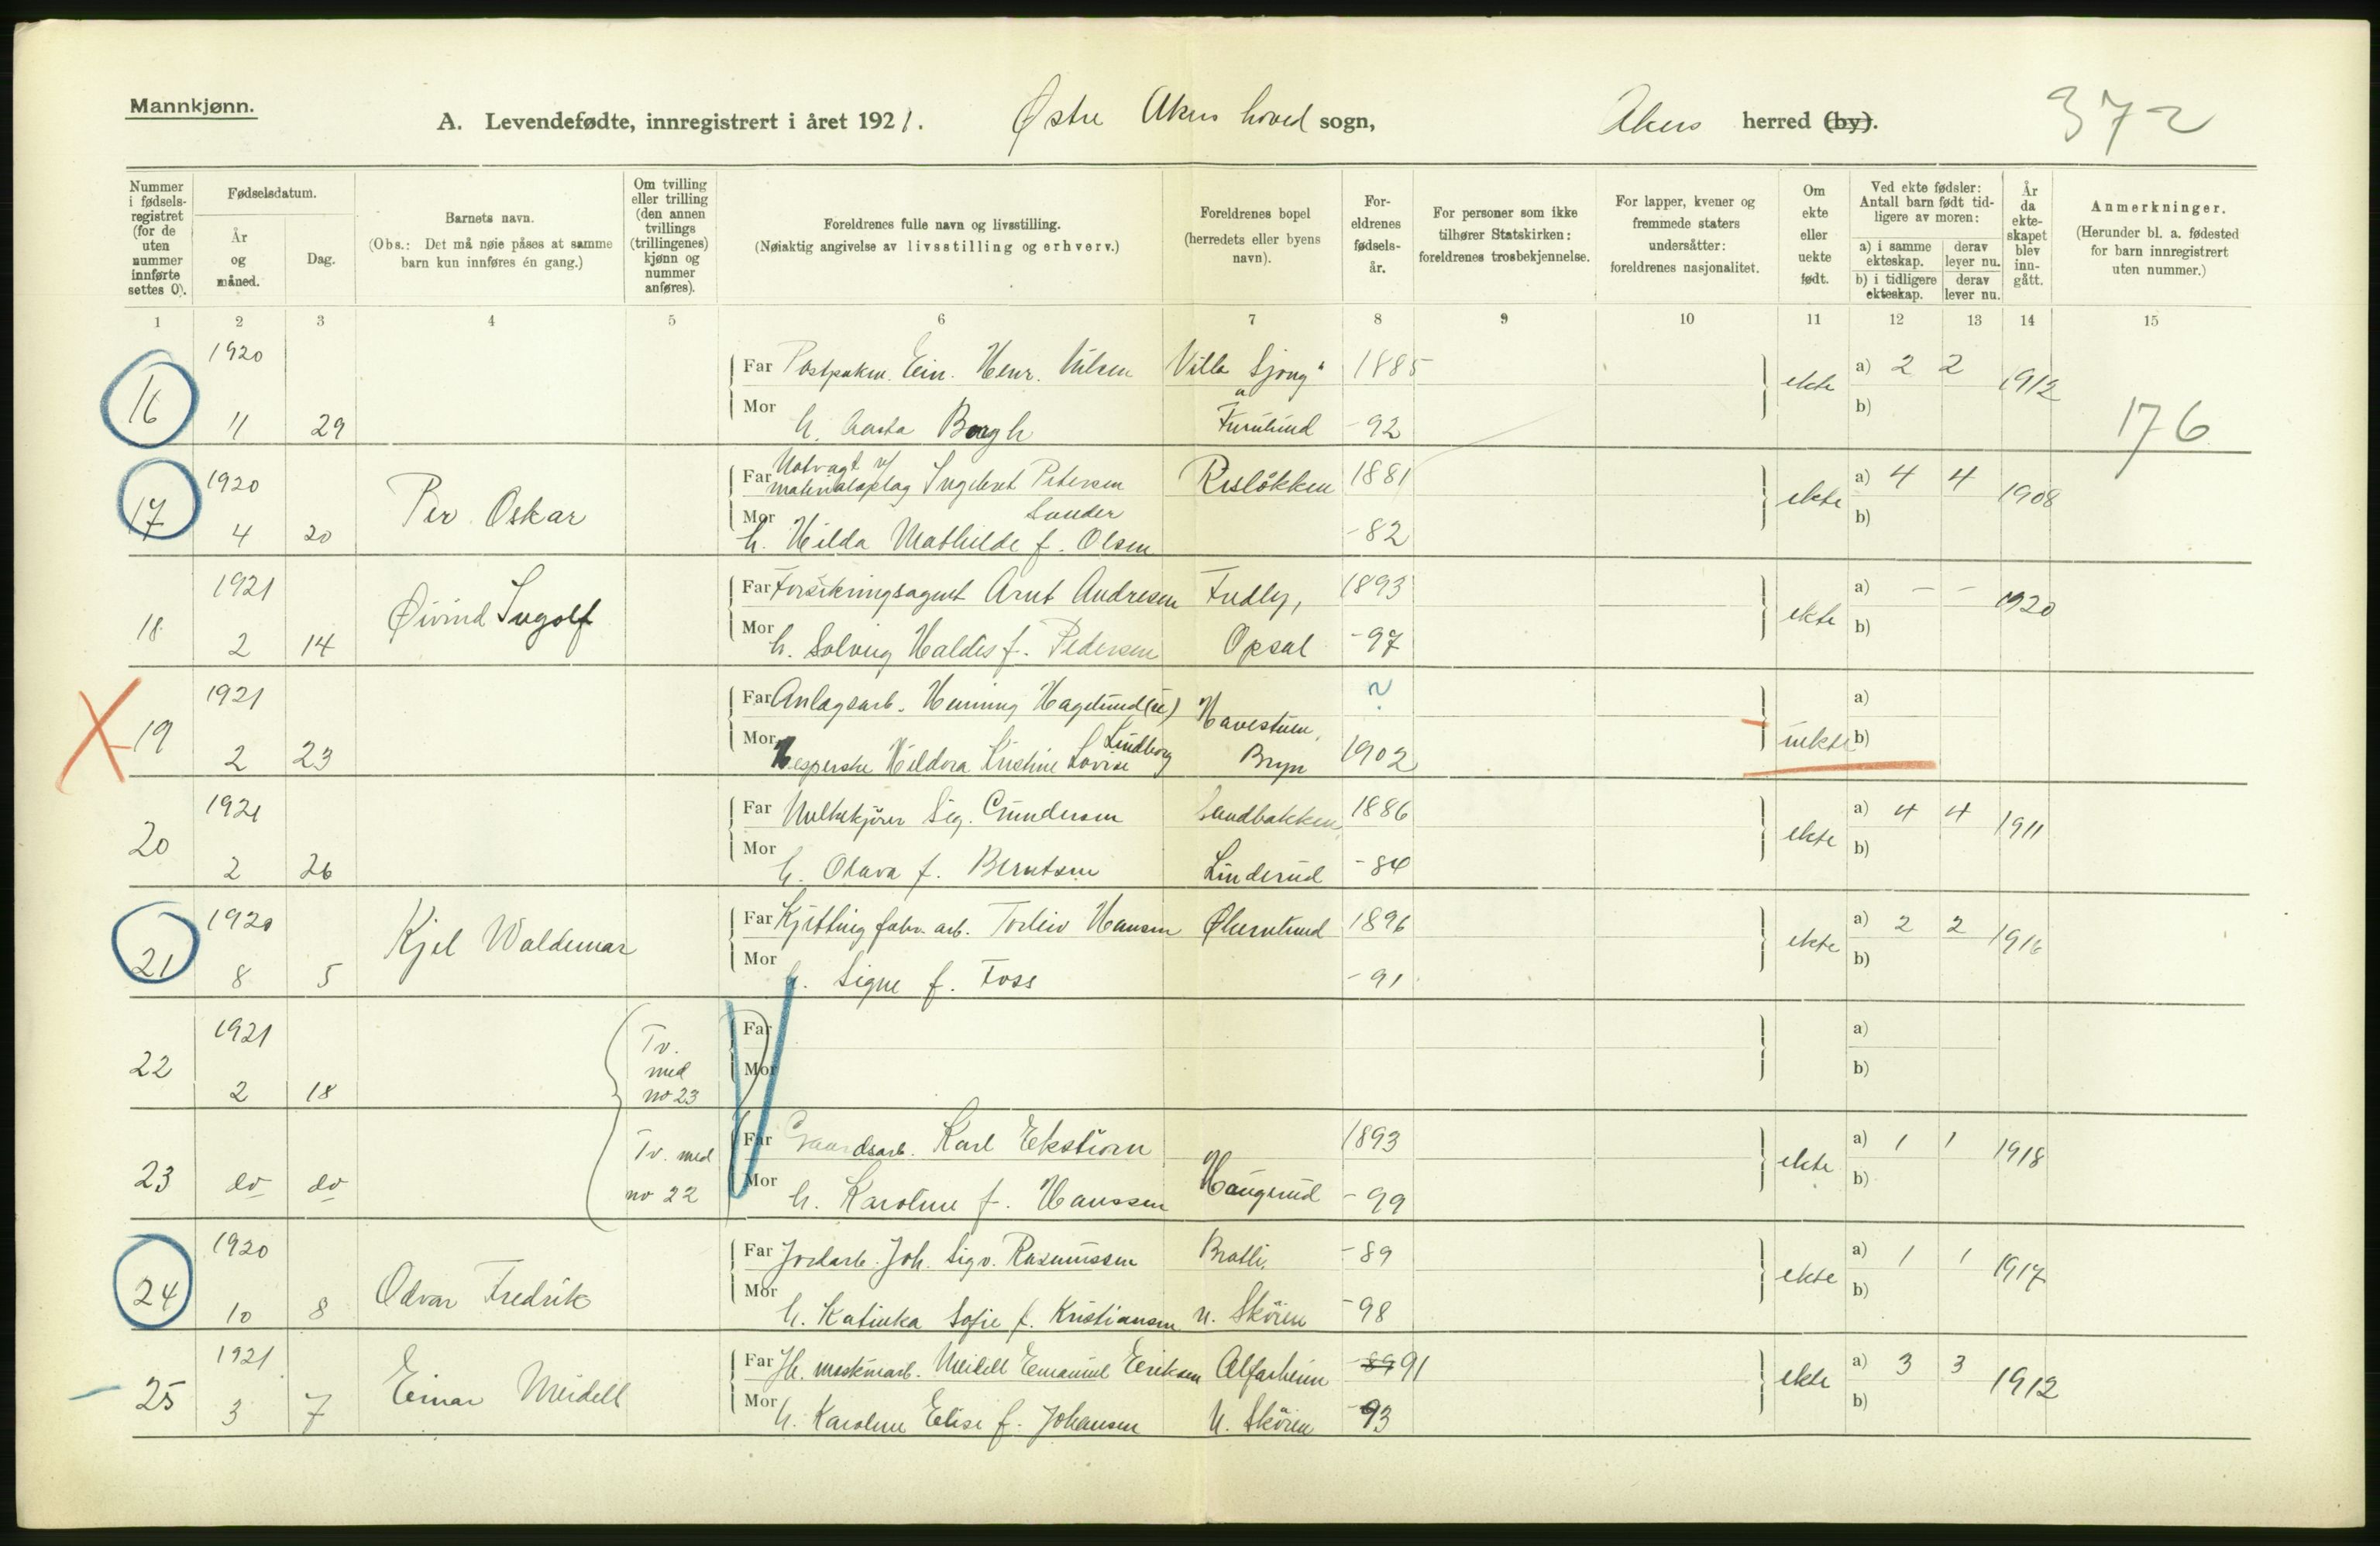 Mannkjønn.
A. Levendefødte, innregistrert i året 1921. Østre Akers hoved sogn, Akers herred (by). 372
Nummer i fødsels-registret (for de uten nummer innførte settes 0).
Fødselsdatum.
År og måned.
Dag.
Barnets navn.
(Obs.: Det må nøie påses at samme barn kun innføres én gang.)
Om tvilling eller trilling (den annen tvillings (trillingenes) kjønn og nummer anføres).
Foreldrenes fulle navn og livsstilling.
(Nøiaktig angivelse av livsstilling og erhverv.)
Foreldrenes bopel (herredets eller byens navn).
For-eldrenes fødsels-år.
For personer som ikke tilhører Statskirken: foreldrenes trosbekjennelse.
For lapper, kvener og fremmede staters undersåtter: foreldrenes nasjonalitet.
Om ekte eller uekte født.
Ved ekte fødsler: Antall barn født tid-ligere av moren:
a) i samme ekteskap.
derav lever nu.
b) i tidligere ekteskap.
derav lever nu.
År da ekte-skapet blev inn-gått.
Anmerkninger.
(Herunder bl. a. fødested for barn innregistrert uten nummer.)
1 2 3 4 5 6 7 8 9 10 11 12 13 14 15
16 1920 Far Postpakm. Ein. Henr. Nilsen Villa "Sjong" 1885 ekte a) 2 2 1912
11 29 Mor h. Aasta Bergh Furulund -92 b) 176
17 1920 Per Oskar Far Natvagt v/ materialoplag Ingebret Petersen Risløkken 1881 ekte a) 4 4 1908
4 20 Mor h. Hilda Mathilde f. Olsen -82 b)
18 1921 Øivind Ingolf Far Forsikringsagent Arnt Andresen Fredly, 1893 ekte a) - - 1920
2 14 Mor h. Solveig Haldis f. Pedersen Opsal -97 b)
19 1921 Far Anlagsarb. Henning Hagelund (u) Havestuen, ? uekte a)
2 23 Mor Hesperske Hildora Kristine Lovise Lindborg Bryn 1902 b)
20 1921 Far Melkekjører Sig. Gundersen Sandbakken, 1886 ekte a) 4 4 1911
2 26 Mor h. Olava f. Berntsen Linderud -84 b)
21 1920 Kjel Waldemar Far Kjetting fabr. arb. Torleiv Hansen Ølurnlund 1896 ekte a) 2 2 1916
8 5 Mor h. Signe f. Foss -91 b)
22 1921 Tv. med no 23 Far a)
2 18 Mor b)
23 do do Tv. med no 22 Far Gaardsarb. Karl Ekstrøm Haugerud 1893 ekte a) 1 1 1918
Mor h. Karoline f. Hanssen -99 b)
24 1920 Odvar Fredrik Far Jordarb. Joh. Sigv. Rasmussen Bratli, -89 ekte a) 1 1 1917
10 8 Mor h. Katinka Sofie f. Kristiansen n. Skøien -98 b)
25 1921 Einar Meidell Far Jk. maskinarb. Meidell Emanuel Eriksen Alfarheim -89 91 ekte a) 3 3 1912
3 7 Mor h. Karoline Elise f. Johansen N. Skøien -93 b)